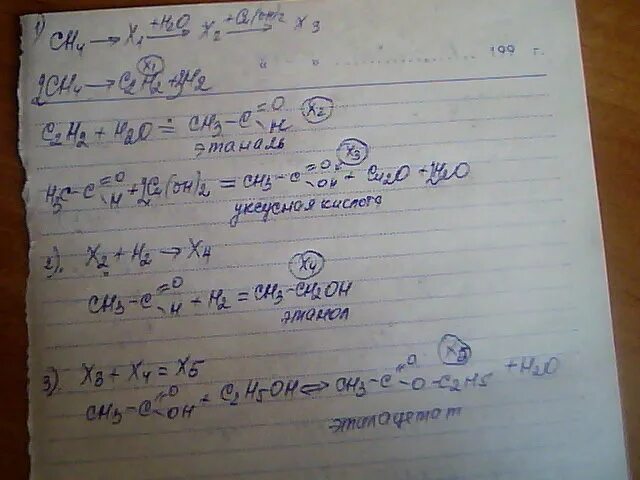 1) CH4 → X1 +H2O → X2 +Cu(OH)2 → X3
" " 199 г.
2CH4 → C2H2 + 3H2 (X1)
C2H2 + H2O = CH3-C =O H (X2)
этаналь
H3C-C =O H + 2Cu(OH)2 = CH3-C =O OH + Cu2O + 2H2O (X3)
уксусная кислота
2). X2 + H2 → X4
CH3-C =O H + H2 = CH3-CH2OH (X4)
этанол
3) X3 + X4 = X5
CH3-C =O OH + C2H5OH ⇔ CH3-C =O O-C2H5 + H2O (X5)
этилацетат